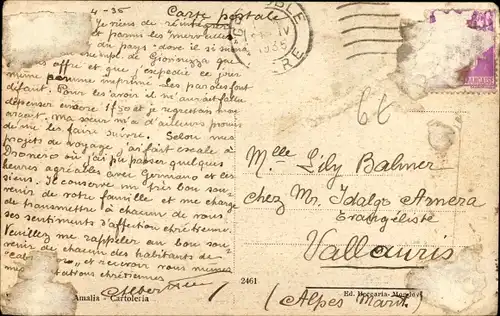 4-35
Carte postale
Je viens de
et parmi les merveilles
du pays - dont il si
offre et que j'expédie ce jour
même comme imprimé. Les paroles font
défaut. Pour les avoir il n'aurait fallu
dépenser encore 1f50 et je regrettais mon
argent. Ma sœur m'a d'ailleurs promis
de me les faire suivre. Selon mes
projets de voyage j'ai fait escale à
où j'ai pu passer quelques
heures agréables avec Germano et les
siens. Il conserve un très bon sou-
venir de votre famille et me charge
de transmettre à chacun de vous
ses sentiments d'affection chrétienne.
Veuillez me rappeler au bon sou-
venir de chacun des habitants de
et recevoir vous même
chrétiennes
1935
66
Melle Lily Balmer
chez Mr. Idalgo Armera
Evangéliste
Vallauris
(Alpes Marit.)
Amalia - Cartoleria
2461
Ed. Beccaria